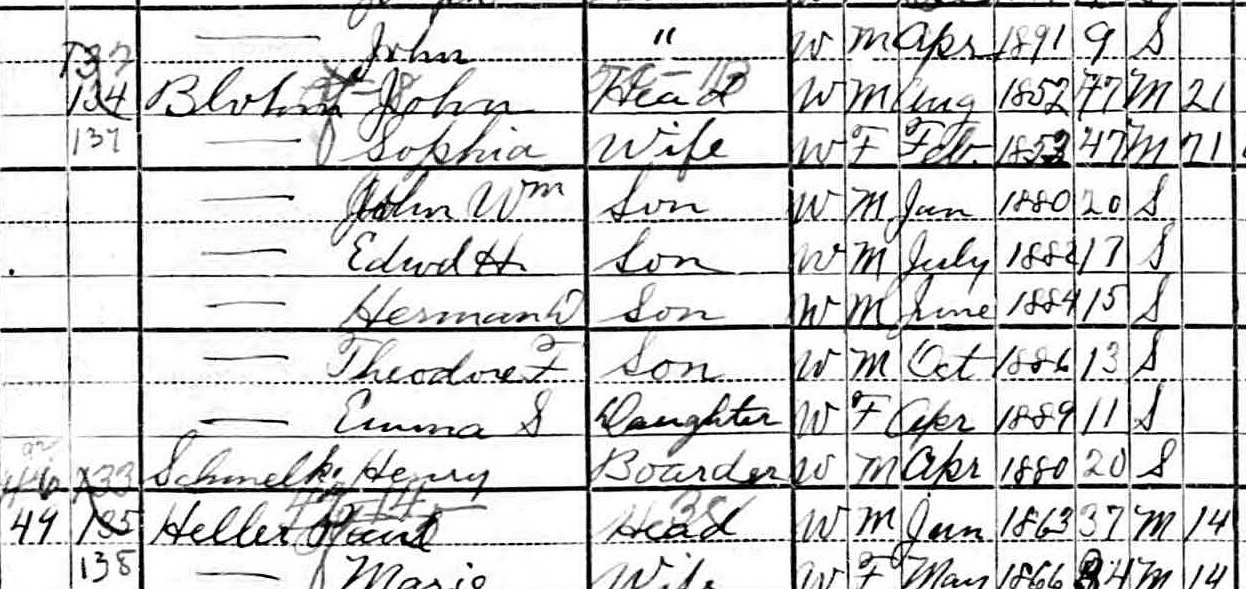 John " W M Apr 1891 9 S
137
134 Blohm John Head W M Aug 1852 47 M 21
137 Sophia Wife W F Feb 1852 47 M 21
John Wm Son W M Jan 1880 20 S
Edwd H Son W M July 1882 17 S
Herman D Son W M June 1884 15 S
Theodore F Son W M Oct 1886 13 S
Emma S Daughter W F Apr 1889 11 S
133 Schmelk Henry Boarder W M Apr 1880 20 S
49 135 Heller Paul Head W M Jan 1863 37 M 14
138 Marie Wife W F May 1866 34 M 14